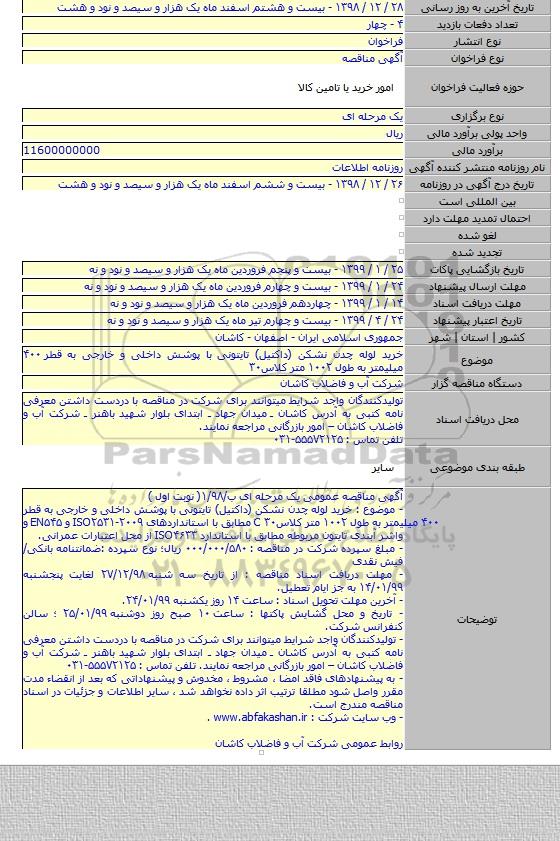 تاریخ آخرین به روز رسانی ۲۸ / ۱۲ / ۱۳۹۸ - بیست و هشتم اسفند ماه یک هزار و سیصد و نود و هشت
تعداد دفعات بازدید ۴ - چهار
نوع انتشار فراخوان
نوع فراخوان آگهی مناقصه
حوزه فعالیت فراخوان امور خرید یا تامین کالا
نوع برگزاری یک مرحله ای
واحد پولی برآورد مالی ریال
برآورد مالی 11600000000
نام روزنامه منتشر کننده آگهی روزنامه اطلاعات
تاریخ درج آگهی در روزنامه ۲۶ / ۱۲ / ۱۳۹۸ - بیست و ششم اسفند ماه یک هزار و سیصد و نود و هشت
بین المللی است
احتمال تمدید مهلت دارد
لغو شده
تجدید شده
تاریخ بازگشایی پاکات ۲۵ / ۱ / ۱۳۹۹ - بیست و پنجم فروردین ماه یک هزار و سیصد و نود و نه
مهلت ارسال پیشنهاد ۲۴ / ۱ / ۱۳۹۹ - بیست و چهارم فروردین ماه یک هزار و سیصد و نود و نه
مهلت دریافت اسناد ۱۴ / ۱ / ۱۳۹۹ - چهاردهم فروردین ماه یک هزار و سیصد و نود و نه
تاریخ اعتبار پیشنهاد ۲۴ / ۴ / ۱۳۹۹ - بیست و چهارم تیر ماه یک هزار و سیصد و نود و نه
کشور | استان | شهر جمهوری اسلامی ایران - اصفهان - کاشان
موضوع خرید لوله چدن نشکن (داکتیل) تایتونی با پوشش داخلی و خارجی به قطر ۴۰۰
میلیمتر به طول ۱۰۰۲ متر کلاس۳۰
دستگاه مناقصه گزار شرکت آب و فاضلاب کاشان
محل دریافت اسناد تولیدکنندگان واجد شرایط میتوانند برای شرکت در مناقصه با دردست داشتن معرفی
نامه کتبی به آدرس کاشان ـ میدان جهاد ـ ابتدای بلوار شهید باهنر ـ شرکت آب و
فاضلاب کاشان – امور بازرگانی مراجعه نمایند.
تلفن تماس : ۵۵۵۷۲۱۲۵-۰۳۱
طبقه بندی موضوعی سایر
ParsNamadData
توضیحات
آگهی مناقصه عمومی یک مرحله ای ب/۱/۹۸( نوبت اول )
- موضوع : خرید لوله چدن نشکن (داکتیل) تایتونی با پوشش داخلی و خارجی به قطر
۴۰۰ میلیمتر به طول ۱۰۰۲ متر کلاس۳۰ C مطابق با استانداردهای ISO۲۵۳۱-۲۰۰۹ و EN۵۴۵ و
واشر آبندی تایتون مربوطه مطابق با استاندارد ISO۴۶۳۳ از محل اعتبارات عمرانی.
- مبلغ سپرده شرکت در مناقصه : ۵۸۰/۰۰۰/۰۰۰ ریال؛ نوع سپرده :ضمانتنامه بانکی/
فیش نقدی
- مهلت دریافت اسناد مناقصه : از تاریخ سه شنبه ۲۷/۱۲/۹۸ لغایت پنجشنبه
۱۴/۰۱/۹۹ به جز ایام تعطیل.
- آخرین مهلت تحویل اسناد : ساعت ۱۴ روز یکشنبه ۲۴/۰۱/۹۹.
- تاریخ و محل گشایش پاکتها : ساعت ۱۰ صبح روز دوشنبه ۲۵/۰۱/۹۹ ؛ سالن
کنفرانس شرکت.
- تولیدکنندگان واجد شرایط میتوانند برای شرکت در مناقصه با دردست داشتن معرفی
نامه کتبی به آدرس کاشان ـ میدان جهاد ـ ابتدای بلوار شهید باهنر ـ شرکت آب و
فاضلاب کاشان – امور بازرگانی مراجعه نمایند. تلفن تماس : ۵۵۵۷۲۱۲۵-۰۳۱
- به پیشنهادهای فاقد امضا ، مشروط ، مخدوش و پیشنهاداتی که بعد از انقضاء مدت
مقرر واصل شود مطلقا ترتیب اثر داده نخواهد شد ، سایر اطلاعات و جزئیات در اسناد
مناقصه مندرج است.
- وب سایت شرکت : www.abfakashan.ir .
روابط عمومی شرکت آب و فاضلاب کاشان